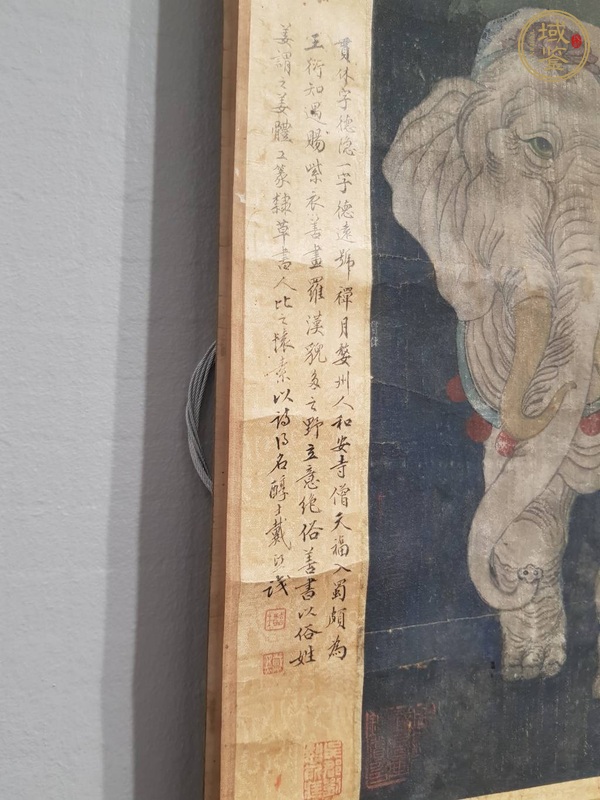 貫休字德隱一字德遠號禪月婺州人和安寺僧天福入蜀頗為
王衍知遇賜紫衣善畫羅漢貌多之野立意絶俗善書以俗姓
姜謂之姜體工篆隸草書人比之懷素以詩得名醇士戴熙識
域鑒